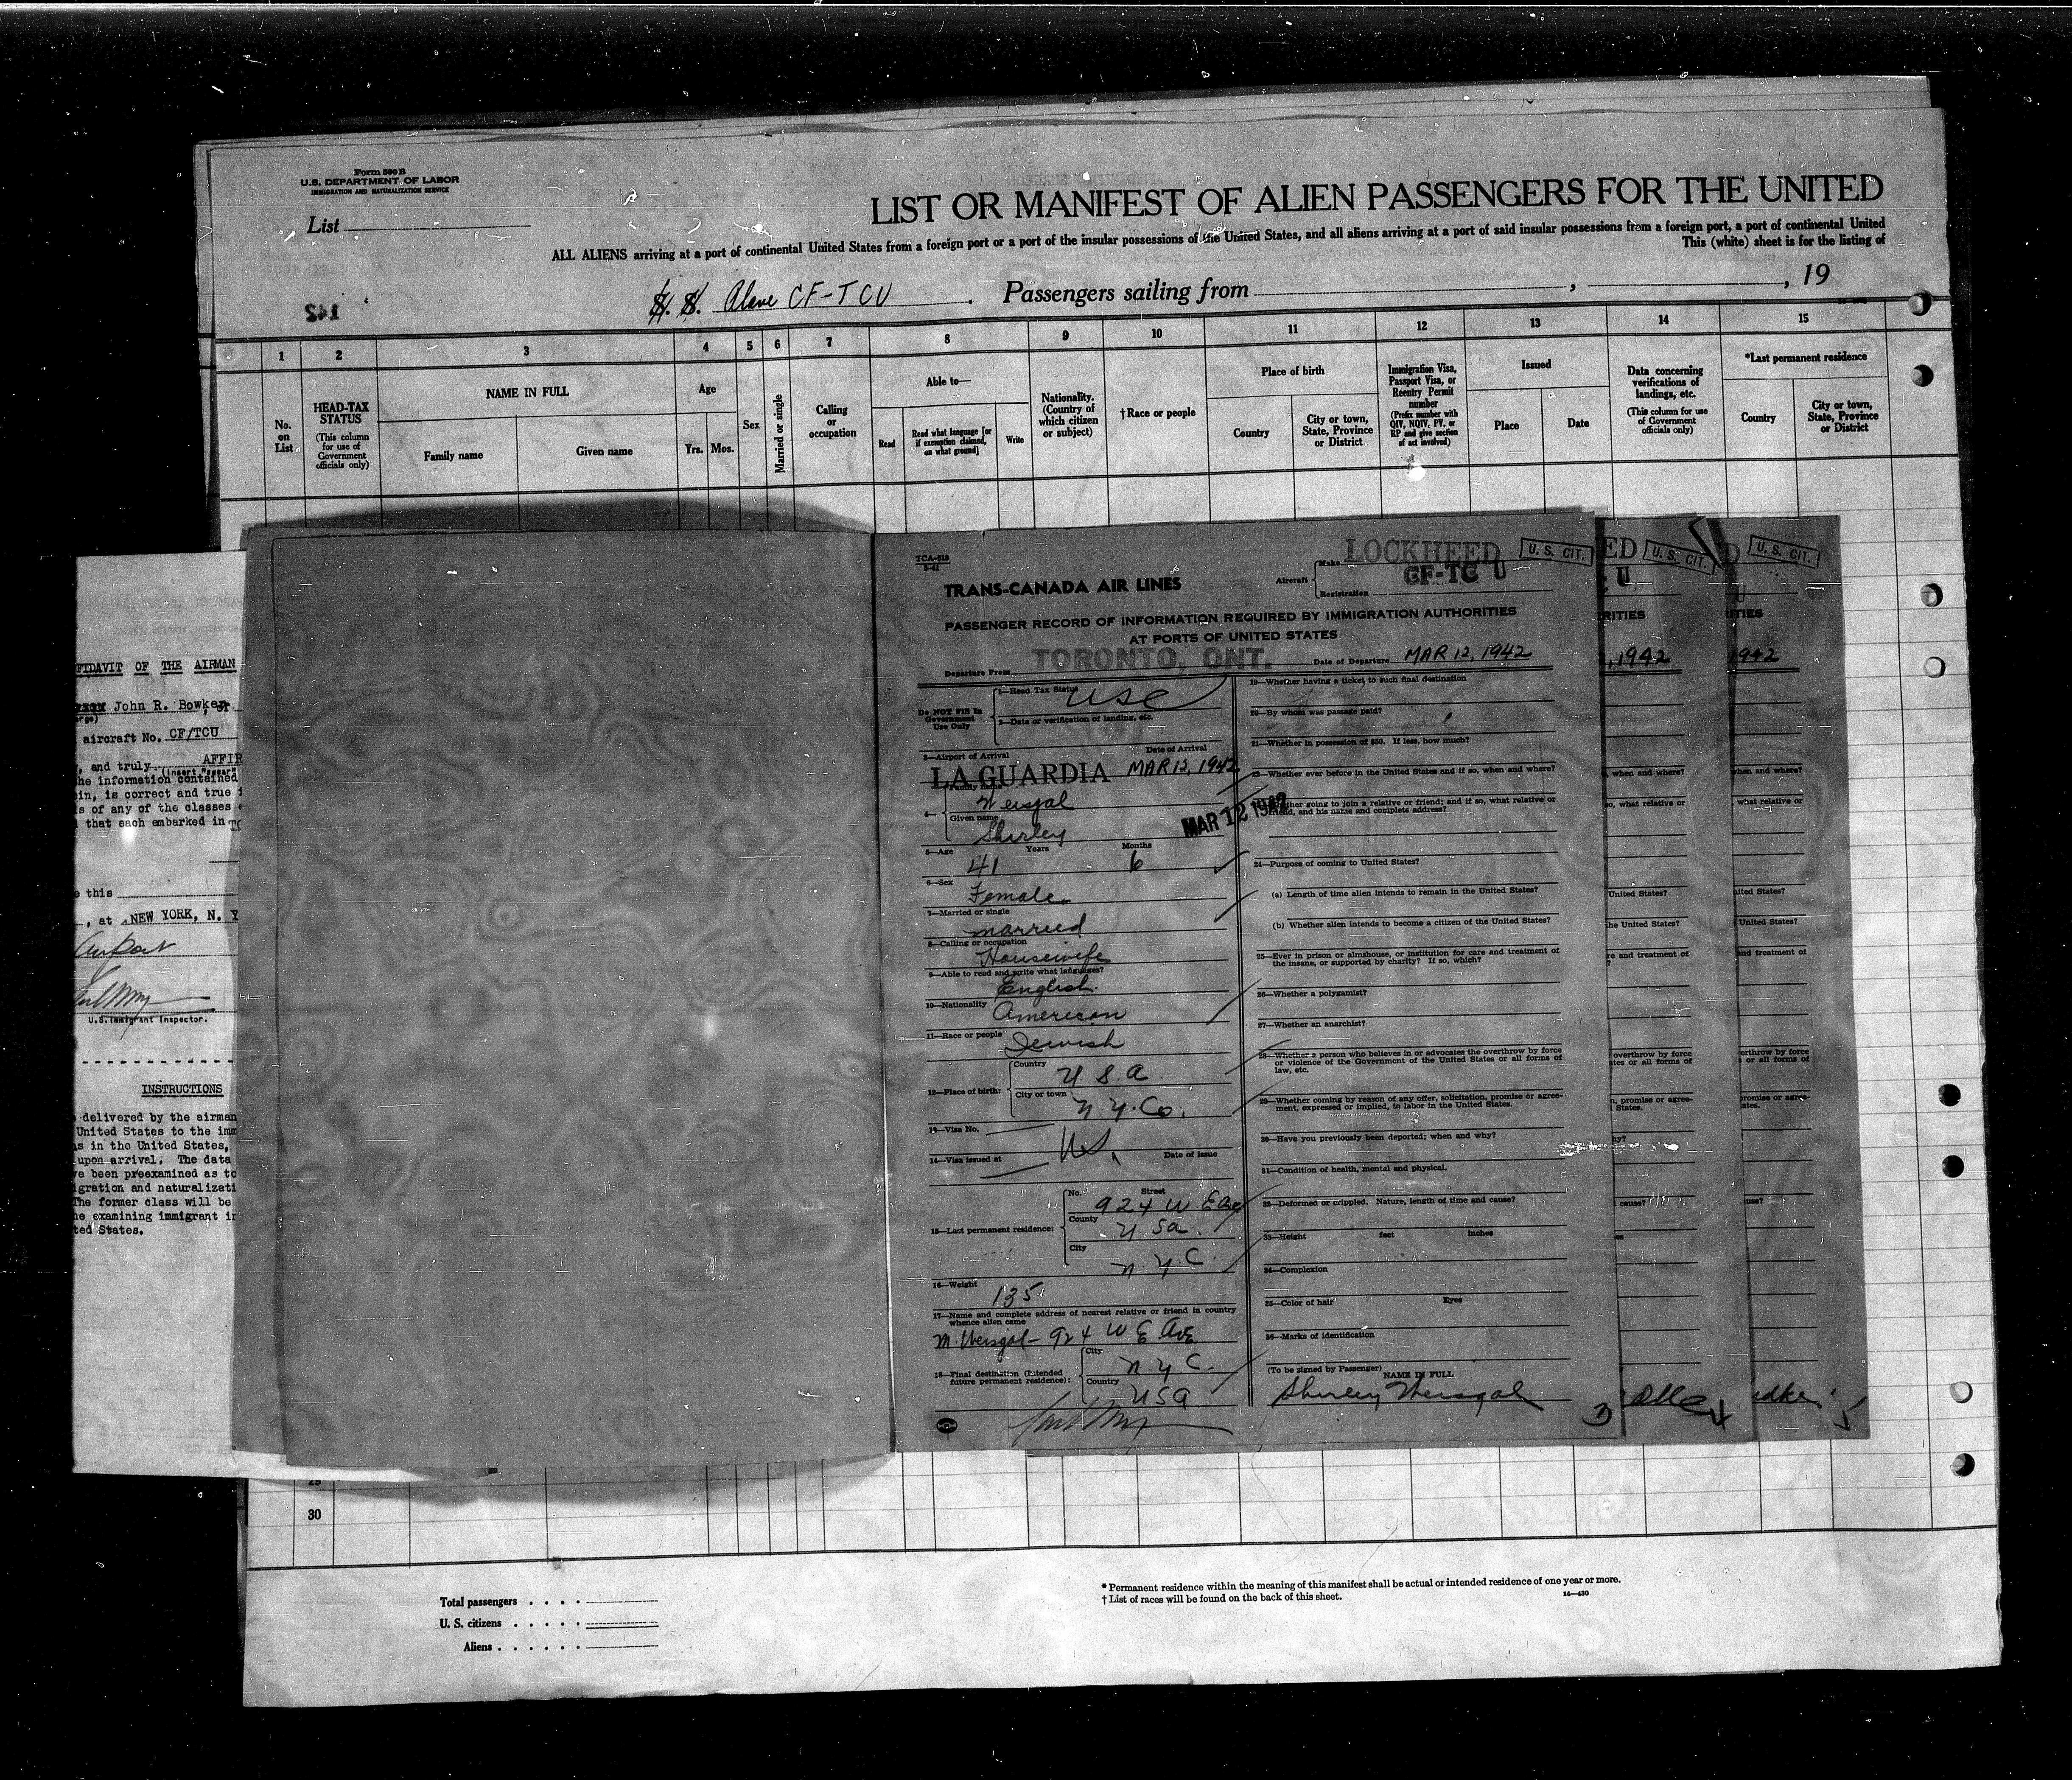 Form 500 B
U.S. DEPARTMENT OF LABOR
IMMIGRATION AND NATURALIZATION SERVICE
List
LIST OR MANIFEST OF ALIEN PASSENGERS FOR THE UNITED
ALL ALIENS arriving at a port of continental United States from a foreign port or a port of the insular possessions of the United States, and all aliens arriving at a port of said insular possessions from a foreign port, a port of continental United
This (white) sheet is for the listing of
142
S. S. Plane CF-TCU . Passengers sailing from , , 19
1 2 3 4 5 6 7 8 9 10 11 12 13 14 15
No. on List
HEAD-TAX STATUS
(This column for use of Government officials only)
NAME IN FULL
Family name
Given name
Age
Yrs. Mos.
Sex
Married or single
Calling or occupation
Able to—
Read
Read what language [or if exemption claimed, on what ground]
Write
Nationality. (Country of which citizen or subject)
†Race or people
Place of birth
Country
City or town, State, Province or District
Immigration Visa, Passport Visa, or Reentry Permit number
(Prefix number with QIV, NQIV, PV, or RP and give section of act involved)
Issued
Place
Date
Data concerning verifications of landings, etc.
(This column for use of Government officials only)
*Last permanent residence
Country
City or town, State, Province or District
FIDAVIT OF THE AIRMAN
John R. Bowker, of
aircraft No. CF/TCU
, and truly AFFIR
(insert "swear"
he information contained
in, is correct and true
s of any of the classes
that each embarked in
this
, at NEW YORK, N. Y
Airport
U.S. Immigrant Inspector.
INSTRUCTIONS
delivered by the airman
United States to the imm
s in the United States,
upon arrival. The data
ve been preexamined as to
igration and naturalizati
The former class will be
he examining immigrant in
ted States.
TCA-513
5-41
TRANS-CANADA AIR LINES
Aircraft
Make LOCKHEED
Registration CF-TC U
U. S. CIT.
PASSENGER RECORD OF INFORMATION REQUIRED BY IMMIGRATION AUTHORITIES
AT PORTS OF UNITED STATES
Departure From TORONTO, ONT. Date of Departure MAR 12, 1942
Do NOT Fill In
Government
Use Only
1—Head Tax Status USC
2—Data or verification of landing, etc.
3—Airport of Arrival Date of Arrival
LA GUARDIA MAR 12, 1942
4— Family name
Weisgal
Given name
Shirley
MAR 12 1942
5—Age Years Months
41 6
6—Sex
Female
7—Married or single
married
8—Calling or occupation
Housewife
9—Able to read and write what languages?
English
10—Nationality
American
11—Race or people
Jewish
12—Place of birth:
Country
U S A
City or town
N. Y. Co.
13—Visa No.
U.S.
14—Visa issued at Date of issue
15—Last permanent residence:
No. Street
924 W E Ave
County
U S a.
City
N Y C.
16—Weight
135
17—Name and complete address of nearest relative or friend in country
whence alien came
M. Weisgal — 924 W E Ave
18—Final destination (Intended
future permanent residence):
City
N Y C.
Country
USA
19—Whether having a ticket to such final destination
20—By whom was passage paid?
21—Whether in possession of $50. If less, how much?
22—Whether ever before in the United States and if so, when and where?
23—Whether going to join a relative or friend; and if so, what relative or
friend, and his name and complete address?
24—Purpose of coming to United States?
(a) Length of time alien intends to remain in the United States?
(b) Whether alien intends to become a citizen of the United States?
25—Ever in prison or almshouse, or institution for care and treatment of
the insane, or supported by charity? If so, which?
26—Whether a polygamist?
27—Whether an anarchist?
28—Whether a person who believes in or advocates the overthrow by force
or violence of the Government of the United States or all forms of
law, etc.
29—Whether coming by reason of any offer, solicitation, promise or agree-
ment, expressed or implied, to labor in the United States.
30—Have you previously been deported; when and why?
31—Condition of health, mental and physical.
32—Deformed or crippled. Nature, length of time and cause?
33—Height feet inches
34—Complexion
35—Color of hair Eyes
36—Marks of identification
(To be signed by Passenger)
NAME IN FULL
Shirley Weisgal
3
ED U. S. CIT.
U
RITIES
, 1942
when and where?
o, what relative or
United States?
he United States?
re and treatment of
overthrow by force
ates or all forms of
n, promise or agree-
States.
hy?
cause?
es
4
D U. S. CIT.
U
ITIES
1942
hen and where?
what relative or
ited States?
United States?
nd treatment of
erthrow by force
or all forms of
promise or agree-
ates.
use?
5
29
30
Total passengers
U. S. citizens
Aliens
* Permanent residence within the meaning of this manifest shall be actual or intended residence of one year or more.
† List of races will be found on the back of this sheet.
14—430